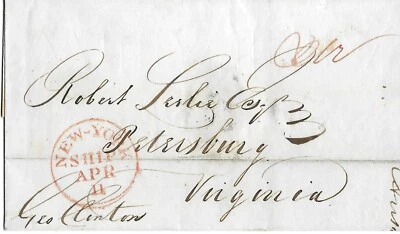 Robert Leslie Esqr
Petersburg
Virginia
NEW-YORK
SHIP
APR
11
Geo Clinton